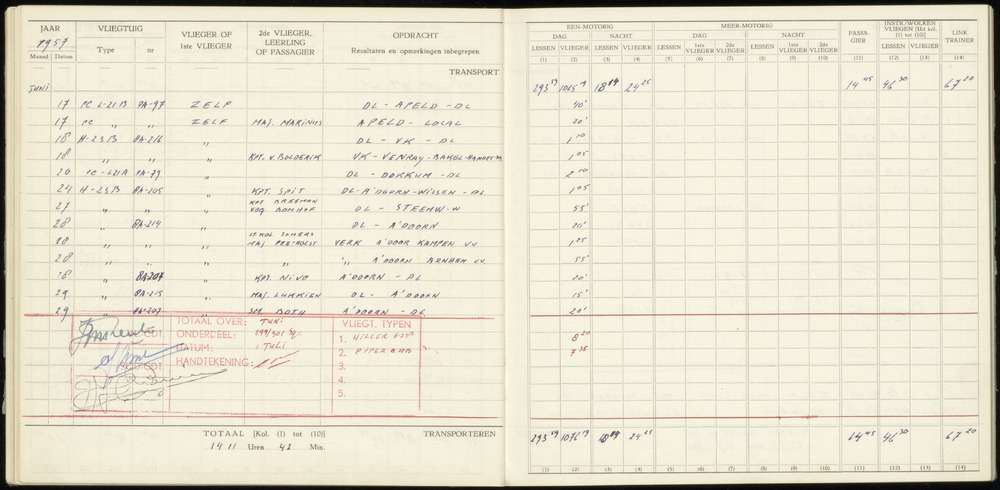 JAAR VLIEGTUIG VLIEGER OF 1ste VLIEGER 2de VLIEGER, LEERLING OF PASSAGIER OPDRACHT
1957 Type nr Resultaten en opmerkingen inbegrepen
Maand Datum
TRANSPORT
JUNI
17 PC L-21B PA-97 ZELF DL - APELD - DL
17 PC " " ZELF MAJ. MARINUS APELD - LOCAL
18 H-23B PA-216 " DL - VK - DL
18 " " " KPT. V. BOLDERIK VK - VENRAY - BAKEL -
20 PC - L21A PA-89 " DL - DOKKUM - DL
24 H-23B PA-205 " KPT. SPIT DL - A'DOORN - WILSEN - DL
27 " " " KPT BREEMAN DL - STEENW-W
28 " PA-214 " DL - A'DOORN
28 " " " LT.KOL SOMERS VERK A'DOOR KAMPEN VV
28 " " " " A'DOORN ARNHEM VV
28 " PA207 " KPT. NIVO A'DOORN - DL
29 " PA-215 " MAJ. LUKKIEN DL - A'DOORN
29 " PA-207 " SM. BOTH A'DOORN - DL
TOTAAL OVER: JUNI VLIEGT. TYPEN
ONDERDEEL: 299/301 Sq. 1. HILLER H-23B
DATUM: 1 JULI 2. PIPER CUB
HANDTEKENING: 3.
4.
5.
TOTAAL [Kol. (1) tot (10)] TRANSPORTEREN
1411 Uren 42 Min.
EEN-MOTORIG MEER-MOTORIG PASSA- GIER INSTR/WOLKEN VLIEGEN [Uit kol. (1) tot (10)] LINK TRAINER
DAG NACHT DAG NACHT
LESSEN VLIEGER LESSEN VLIEGER LESSEN 1ste VLIEGER 2de VLIEGER LESSEN 1ste VLIEGER 2de VLIEGER LESSEN VLIEGER
(1) (2) (3) (4) (5) (6) (7) (8) (9) (10) (11) (12) (13) (14)
293 59 18 24 25 14 45 46 30 67 20
40'
20'
1 10
1 05
2 10
1 05
55'
20'
1 25
55'
20'
15'
20'
8 20
7 35
293 59 24 25 14 45 46 30 67 20
(1) (2) (3) (4) (5) (6) (7) (8) (9) (10) (11) (12) (13) (14)